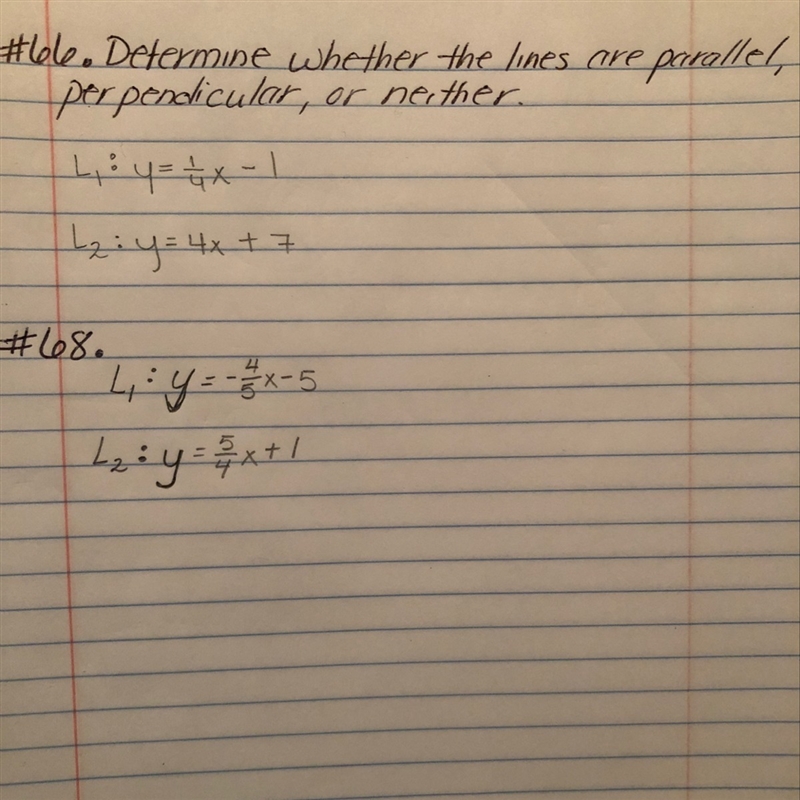 #66. Determine whether the lines are parallel,
perpendicular, or neither.
L₁: y = 1/4 x - 1
L₂: y = 4x + 7
#68.
L₁: y = -4/5 x - 5
L₂: y = 5/4 x + 1